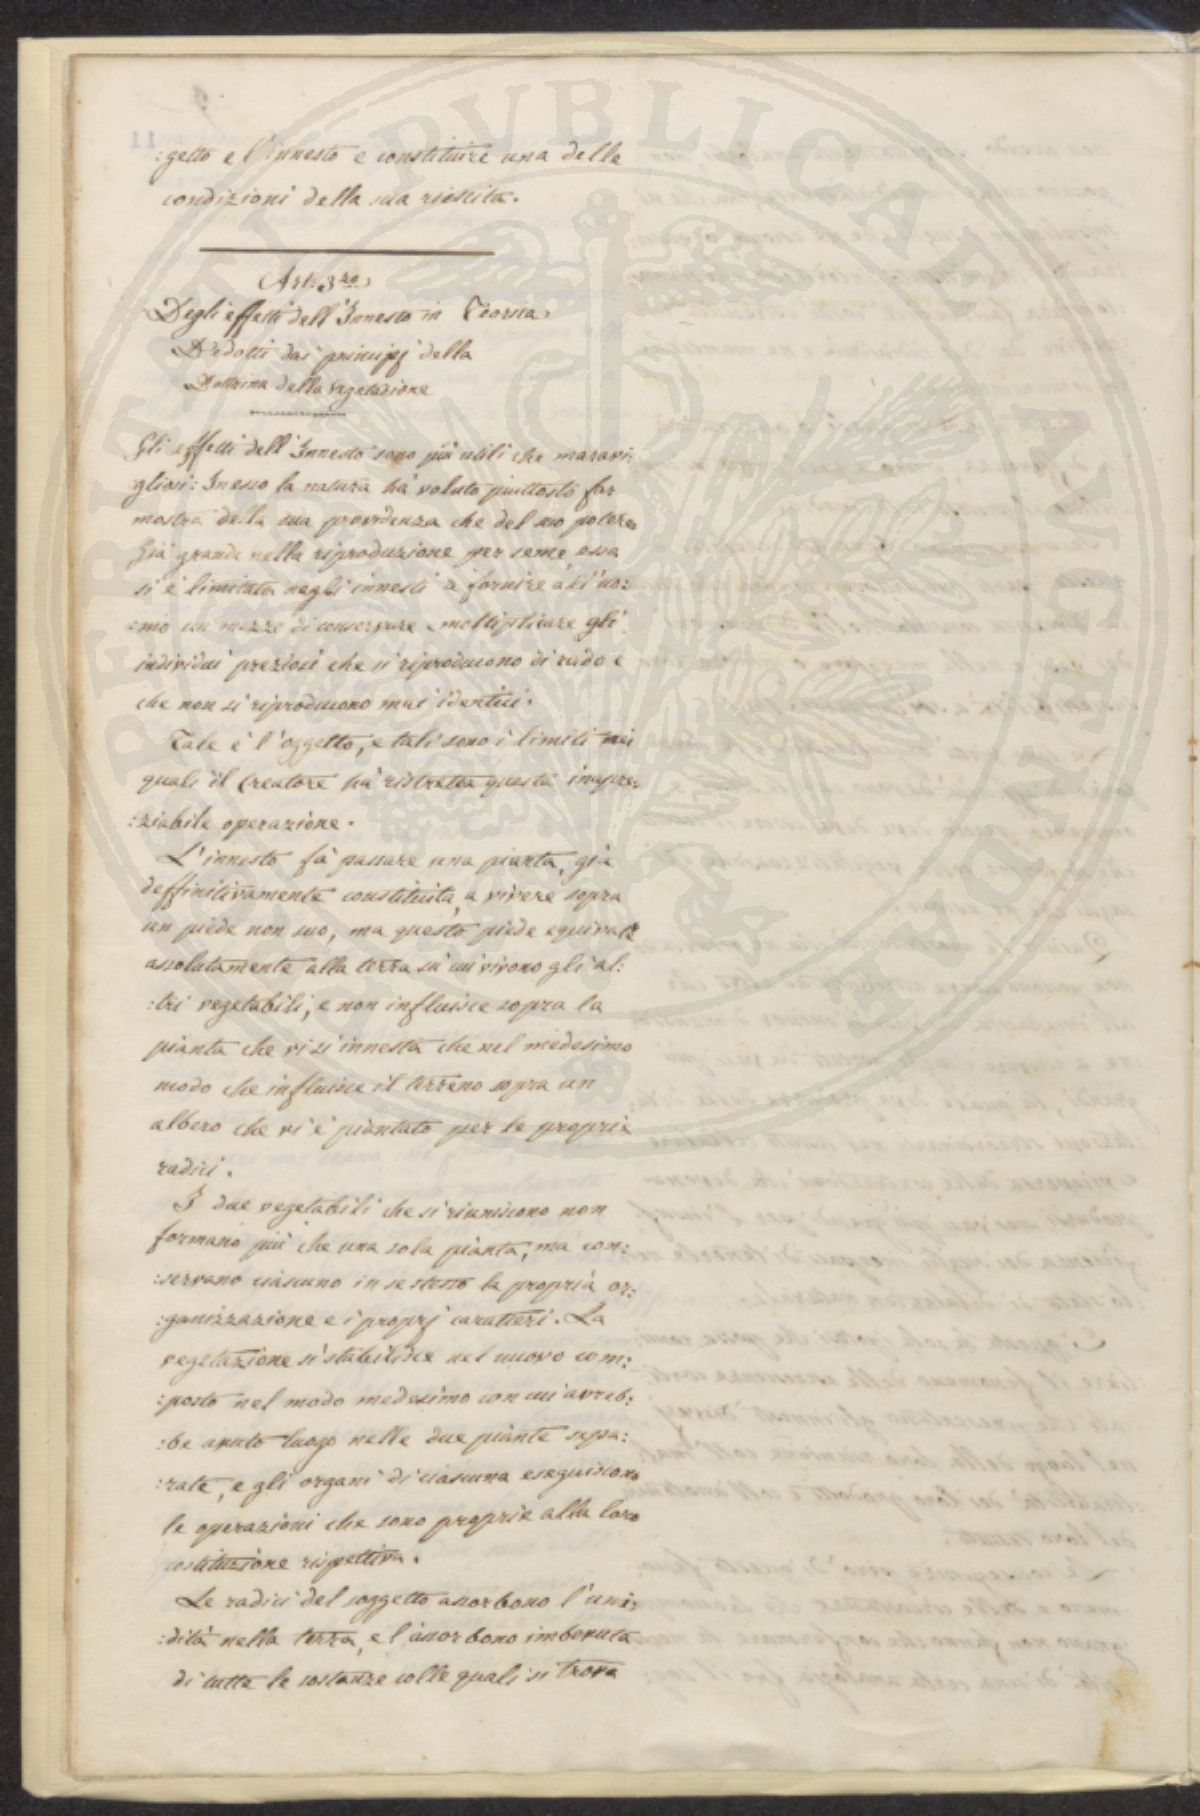 :getto e l'Innesto e constituire una delle
condizioni della sua riescita.
Art. 3zo
Degli effetti dell'Innesto in Teoria
Dedotti dai principj della
Dottrina della vegetazione
Gli effetti dell'Innesto sono più utili che maravi:
gliosi: In esso la natura há voluto piuttosto far
mostra della sua providenza che del suo potere.
Già grande nella riproduzione per seme, essa
si è limitata negli innesti a fornire all'uo:
:mo un mezzo di conservare e moltiplicare gli
individui preziosi che si riproducono di rado e
che non si riproducono mai identici.
Tale è l'oggetto, e tali sono i limiti nei
quali il Creatore há ristretta questa inapre:
:ziabile operazione.
L'innesto fà passare una pianta, già
deffinitivamente constituita, a vivere sopra
un piede non suo; ma questo piede equivale
assolutamente alla terra sù cui vivono gli al:
:tri vegetabili, e non influisce sopra la
pianta che vi si innesta che nel medesimo
modo che influisce il terreno sopra un
albero che vi è piantato per le proprie
radici.
I due vegetabili che si riuniscono non
formano più che una sola pianta, ma con:
:servano ciascuno in se stesso la propria or:
:ganizzazione e i proprj caratteri. La
vegetazione si stabilisce nel nuovo com:
:posto nel modo medesimo con cui avreb:
:be avuto luogo nelle due piante sepa:
:rate, e gli organi di ciascuna eseguiscono
le operazioni che sono proprie alla loro
costituzione rispettiva.
Le radici del soggetto assorbono l'umi:
:dità nella terra, e l'assorbono imbevuta
di tutte le sostanze colle quali si trova